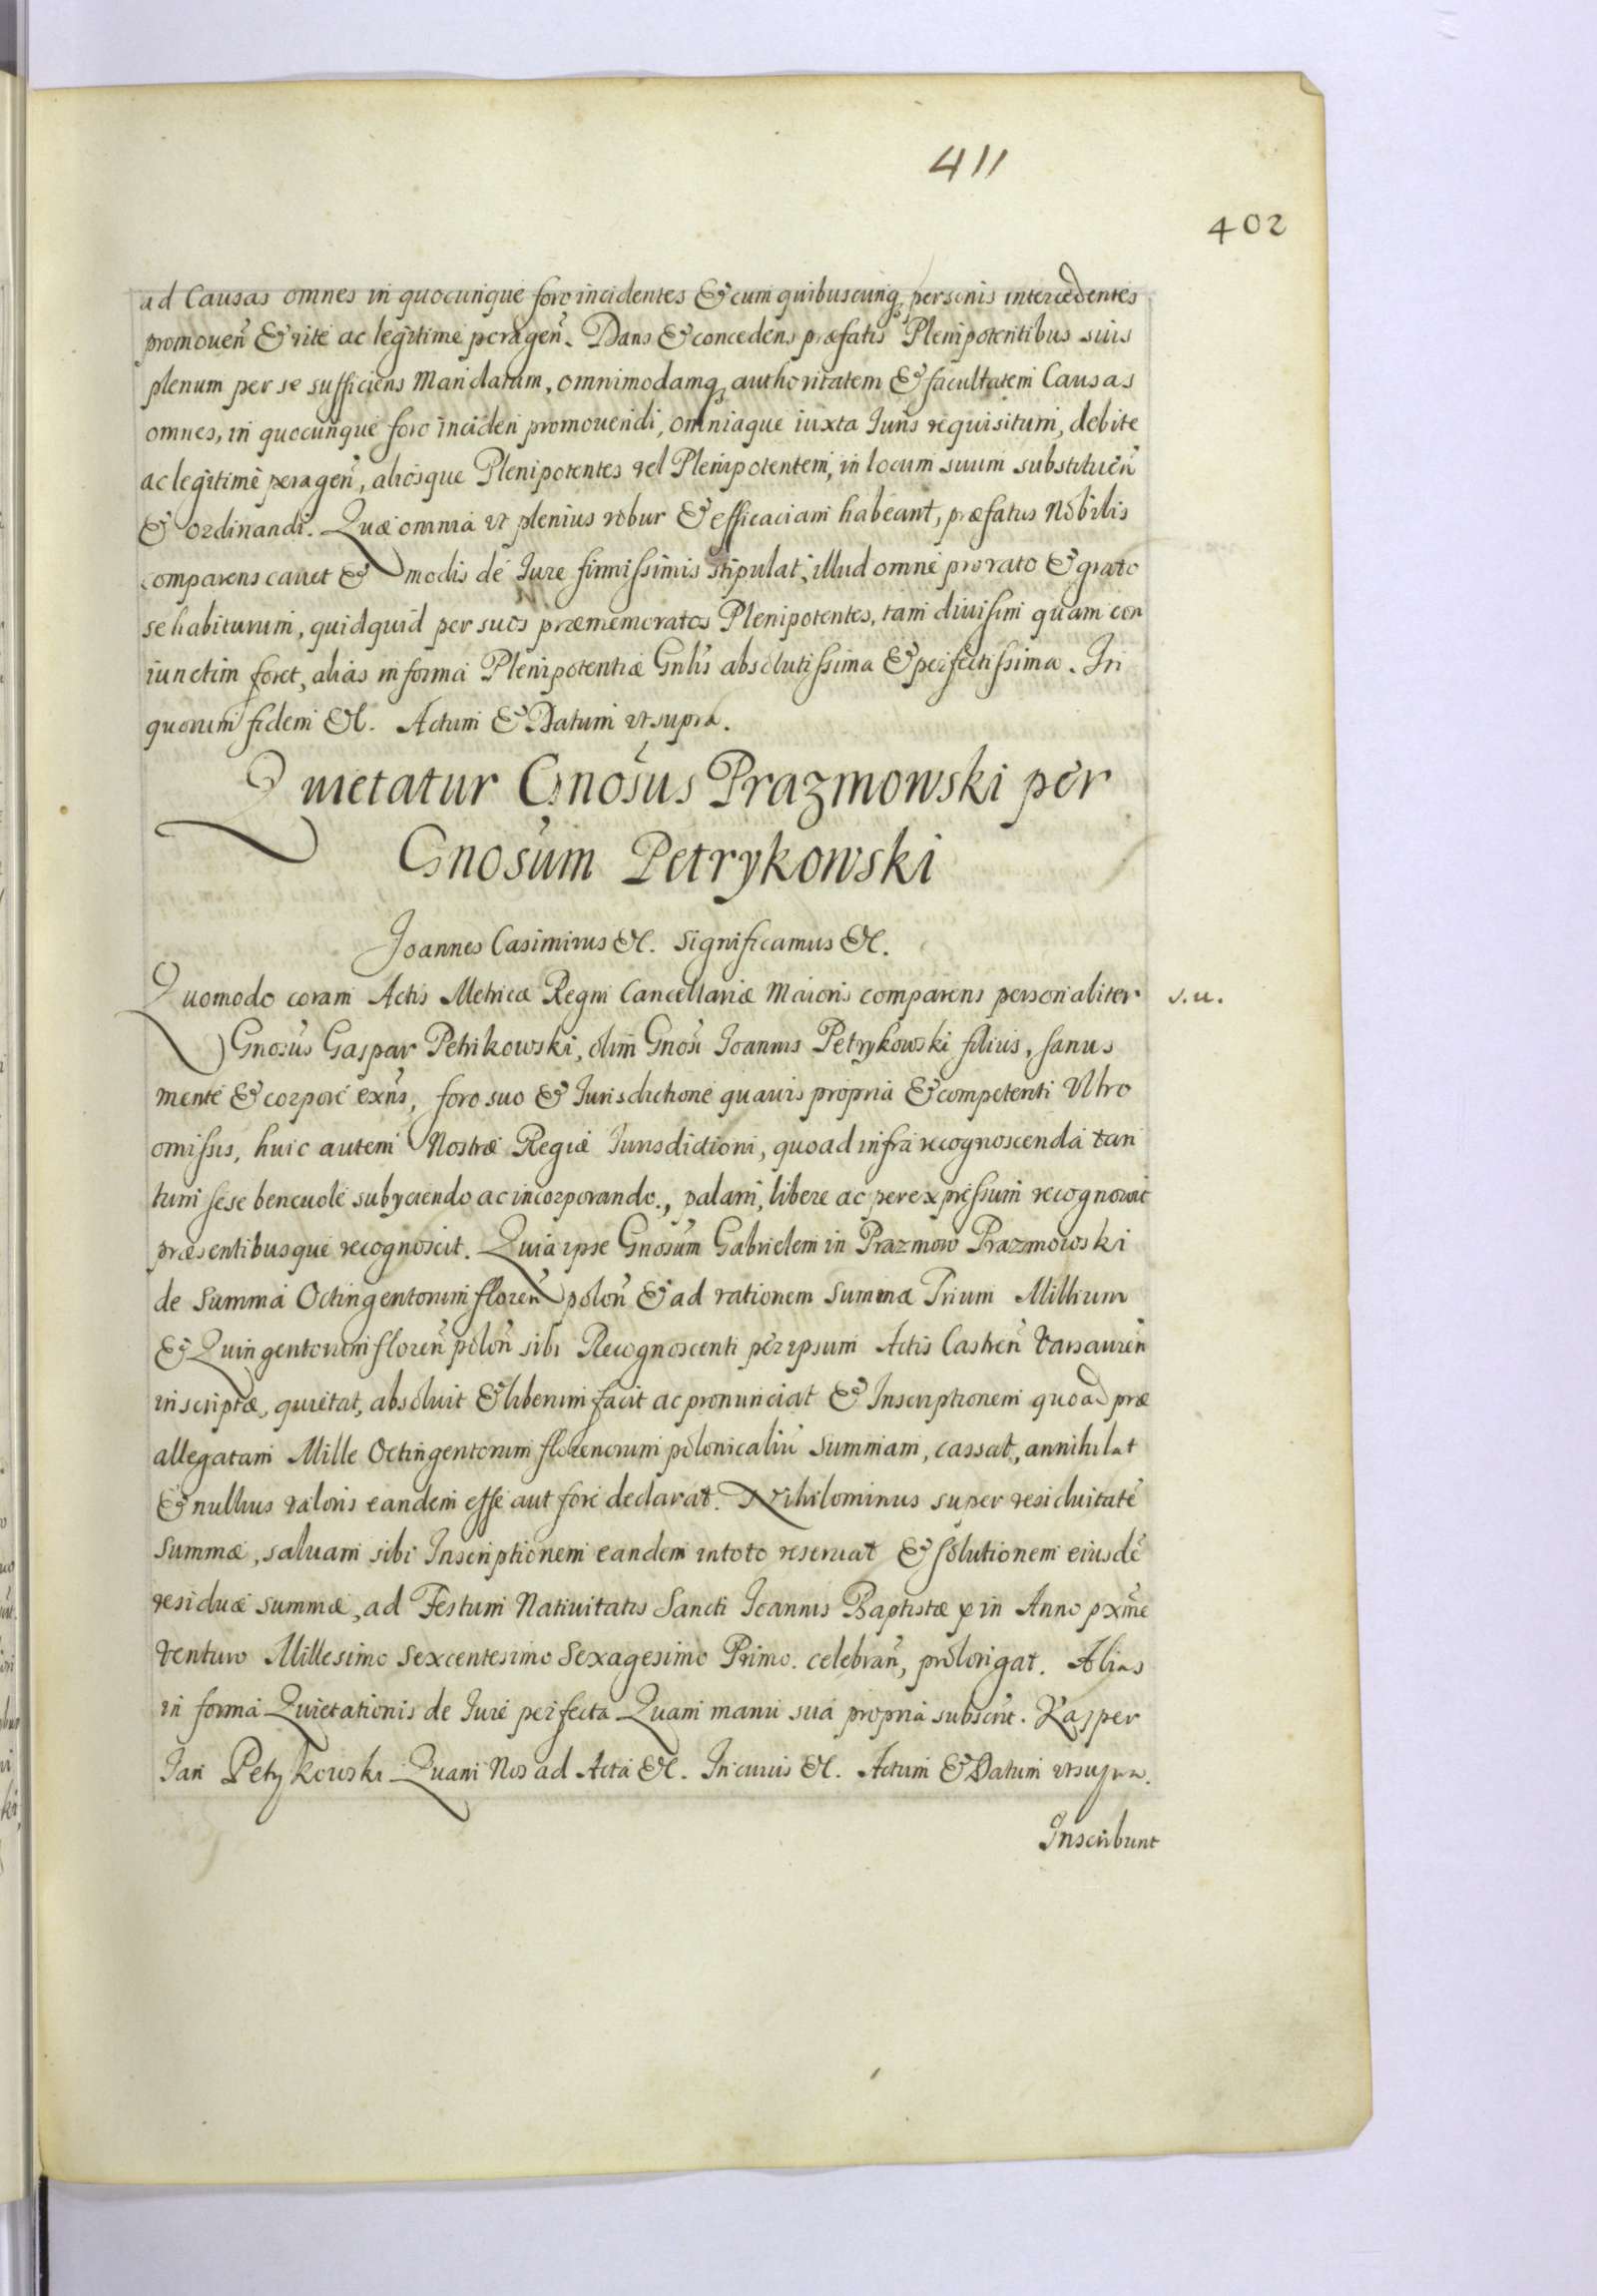 411
402
ad Causas omnes in quocunque foro incidentes & cum quibuscunq, personis intercedentes
promoueñ & rite ac legitime perageñ. Dans & concedens præfatis Plenipotentibus suis
plenum per se sufficiens Mandatum, omnimodamq, authoritatem & facultatem Causas
omnes, in quocunque foro inciden promouendi, omniaque iuxta Iuris requisitum, debite
ac legitime perageñ, aliosque Plenipotentes vel Plenipotentem, in locum suum substitueñ
& ordinandi. Quæ omnia vt plenius robur & efficaciam habeant, præfatus Nobilis
comparens cauet & modis de Iure firmissimis stipulat, illud omne pro rato & grato
se habiturum, quidquid per suos præmemoratos Plenipotentes, tam diuisim quam con
iunctim foret, alias in forma Plenipotentiæ Gnlis absolutissima & perfectissima. In
quorum fidem &c. Actum & Datum vt supra.
Quietatur Gnosus Prazmowski per
Gnosum Petrykowski
Joannes Casimirus &c. Significamus &c.
Quomodo coram Actis Metricæ Regni Cancellariæ Maioris comparens personaliter s.u.
Gnosus Gaspar Petrikowski, olim Gnosi Joannis Petrykowski filius, sanus
mente & corpore exns, foro suo & Iurisdictione quauis propria & competenti Vltro
omissis, huic autem Nostræ Regiæ Iurisdictioni, quoad infra recognoscenda tan
tum sese beneuole subyciendo ac incorporando., palam, libere ac per expressum recognouit
præsentibusque recognoscit. Quia ipse Gnosum Gabrielem in Prazmow Prazmowski
de Summa Octingentorum floreñ poloñ & ad rationem Summæ Trium Millium
& Quingentorum floreñ poloñ sibi Recognoscenti per ipsum Actis Castreñ Varsauieñ
inscriptæ, quietat, absoluit & liberum facit ac pronunciat & Inscriptionem quoad præ
allegatam Mille Octingentorum florenorum polonicaliũ Summam, cassat, annihilat
& nullius valoris eandem esse aut fore declarat. Nihilominus super residuitatẽ
Summæ, saluam sibi Inscriptionem eandem in toto reseruat & solutionem eiusdẽ
residuæ summæ, ad Festum Natiuitatis Sancti Joannis Baptistæ in Anno pxme
venturo Millesimo Sexcentesimo Sexagesimo Primo. celebrañ, prolongat. Alias
in forma Quietationis de Iure perfecta Quam manu sua propria subscrit. Kasper
Jan Petrykowski Quam Nos ad Acta &c. In cuius &c. Actum & Datum vt supra.
Inscribunt